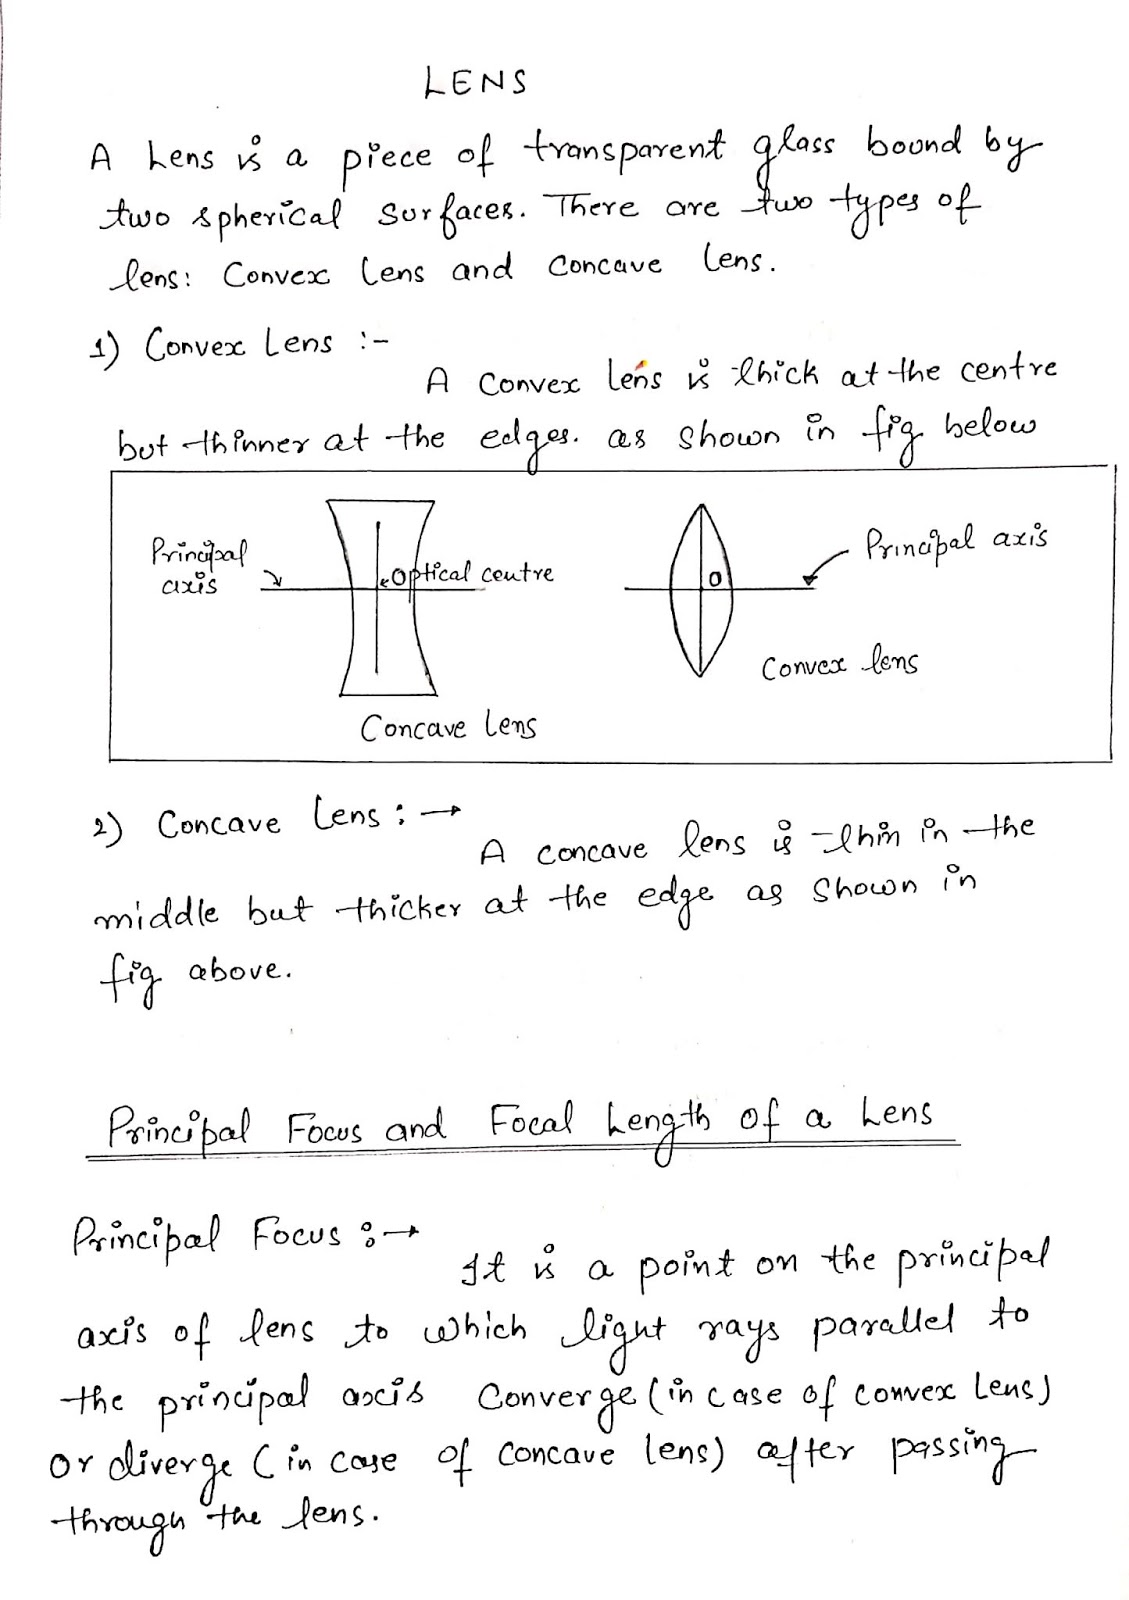 LENS
A Lens is a piece of transparent glass bound by
two spherical surfaces. There are two types of
lens: Convex lens and concave lens.
1) Convex Lens :-
A convex lens is thick at the centre
but thinner at the edges. as shown in fig below
Principal
axis
Optical centre
O
Principal axis
Convex lens
Concave lens
2) Concave lens : →
A concave lens is thin in the
middle but thicker at the edge as shown in
fig above.
Principal Focus and Focal Length of a Lens
Principal Focus : →
It is a point on the principal
axis of lens to which light rays parallel to
the principal axis Converge (in case of convex lens)
or diverge (in case of concave lens) after passing
through the lens.